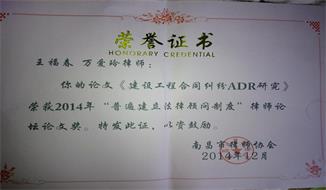 荣誉证书
HONORARY CREDENTIAL
王福春 万爱玲律师：
你的论文《建设工程合同纠纷ADR研究》
荣获2014年“普遍建立法律顾问制度”律师论
坛论文奖。特发此证，以资鼓励。
南昌市律师协会
2014年12月